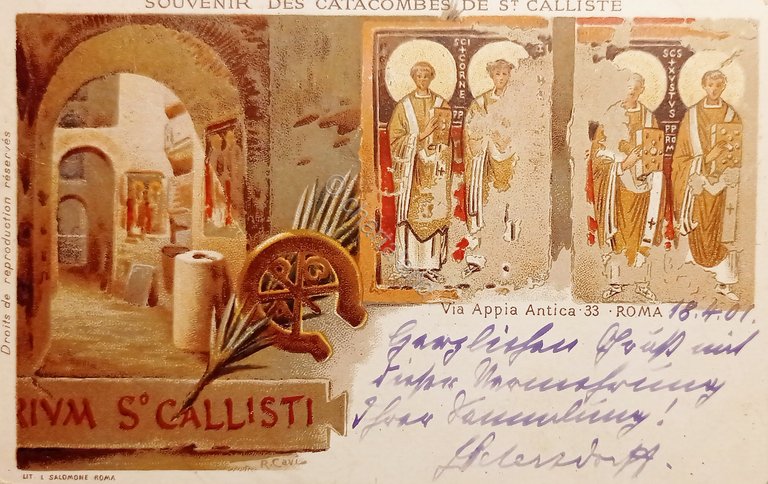 SOUVENIR DES CATACOMBES DE ST CALLISTE
Droits de reproduction réservés
SCI
CORNE
PP
SCS
XVSTVS
PP
ROM
Via Appia Antica · 33 · ROMA 18.4.01.
Herzlichen Gruß mit
dieser Vermehrung
Ihrer Sammlung!
RIVM So CALLISTI
R. Cavi
LIT. SALOMONE ROMA